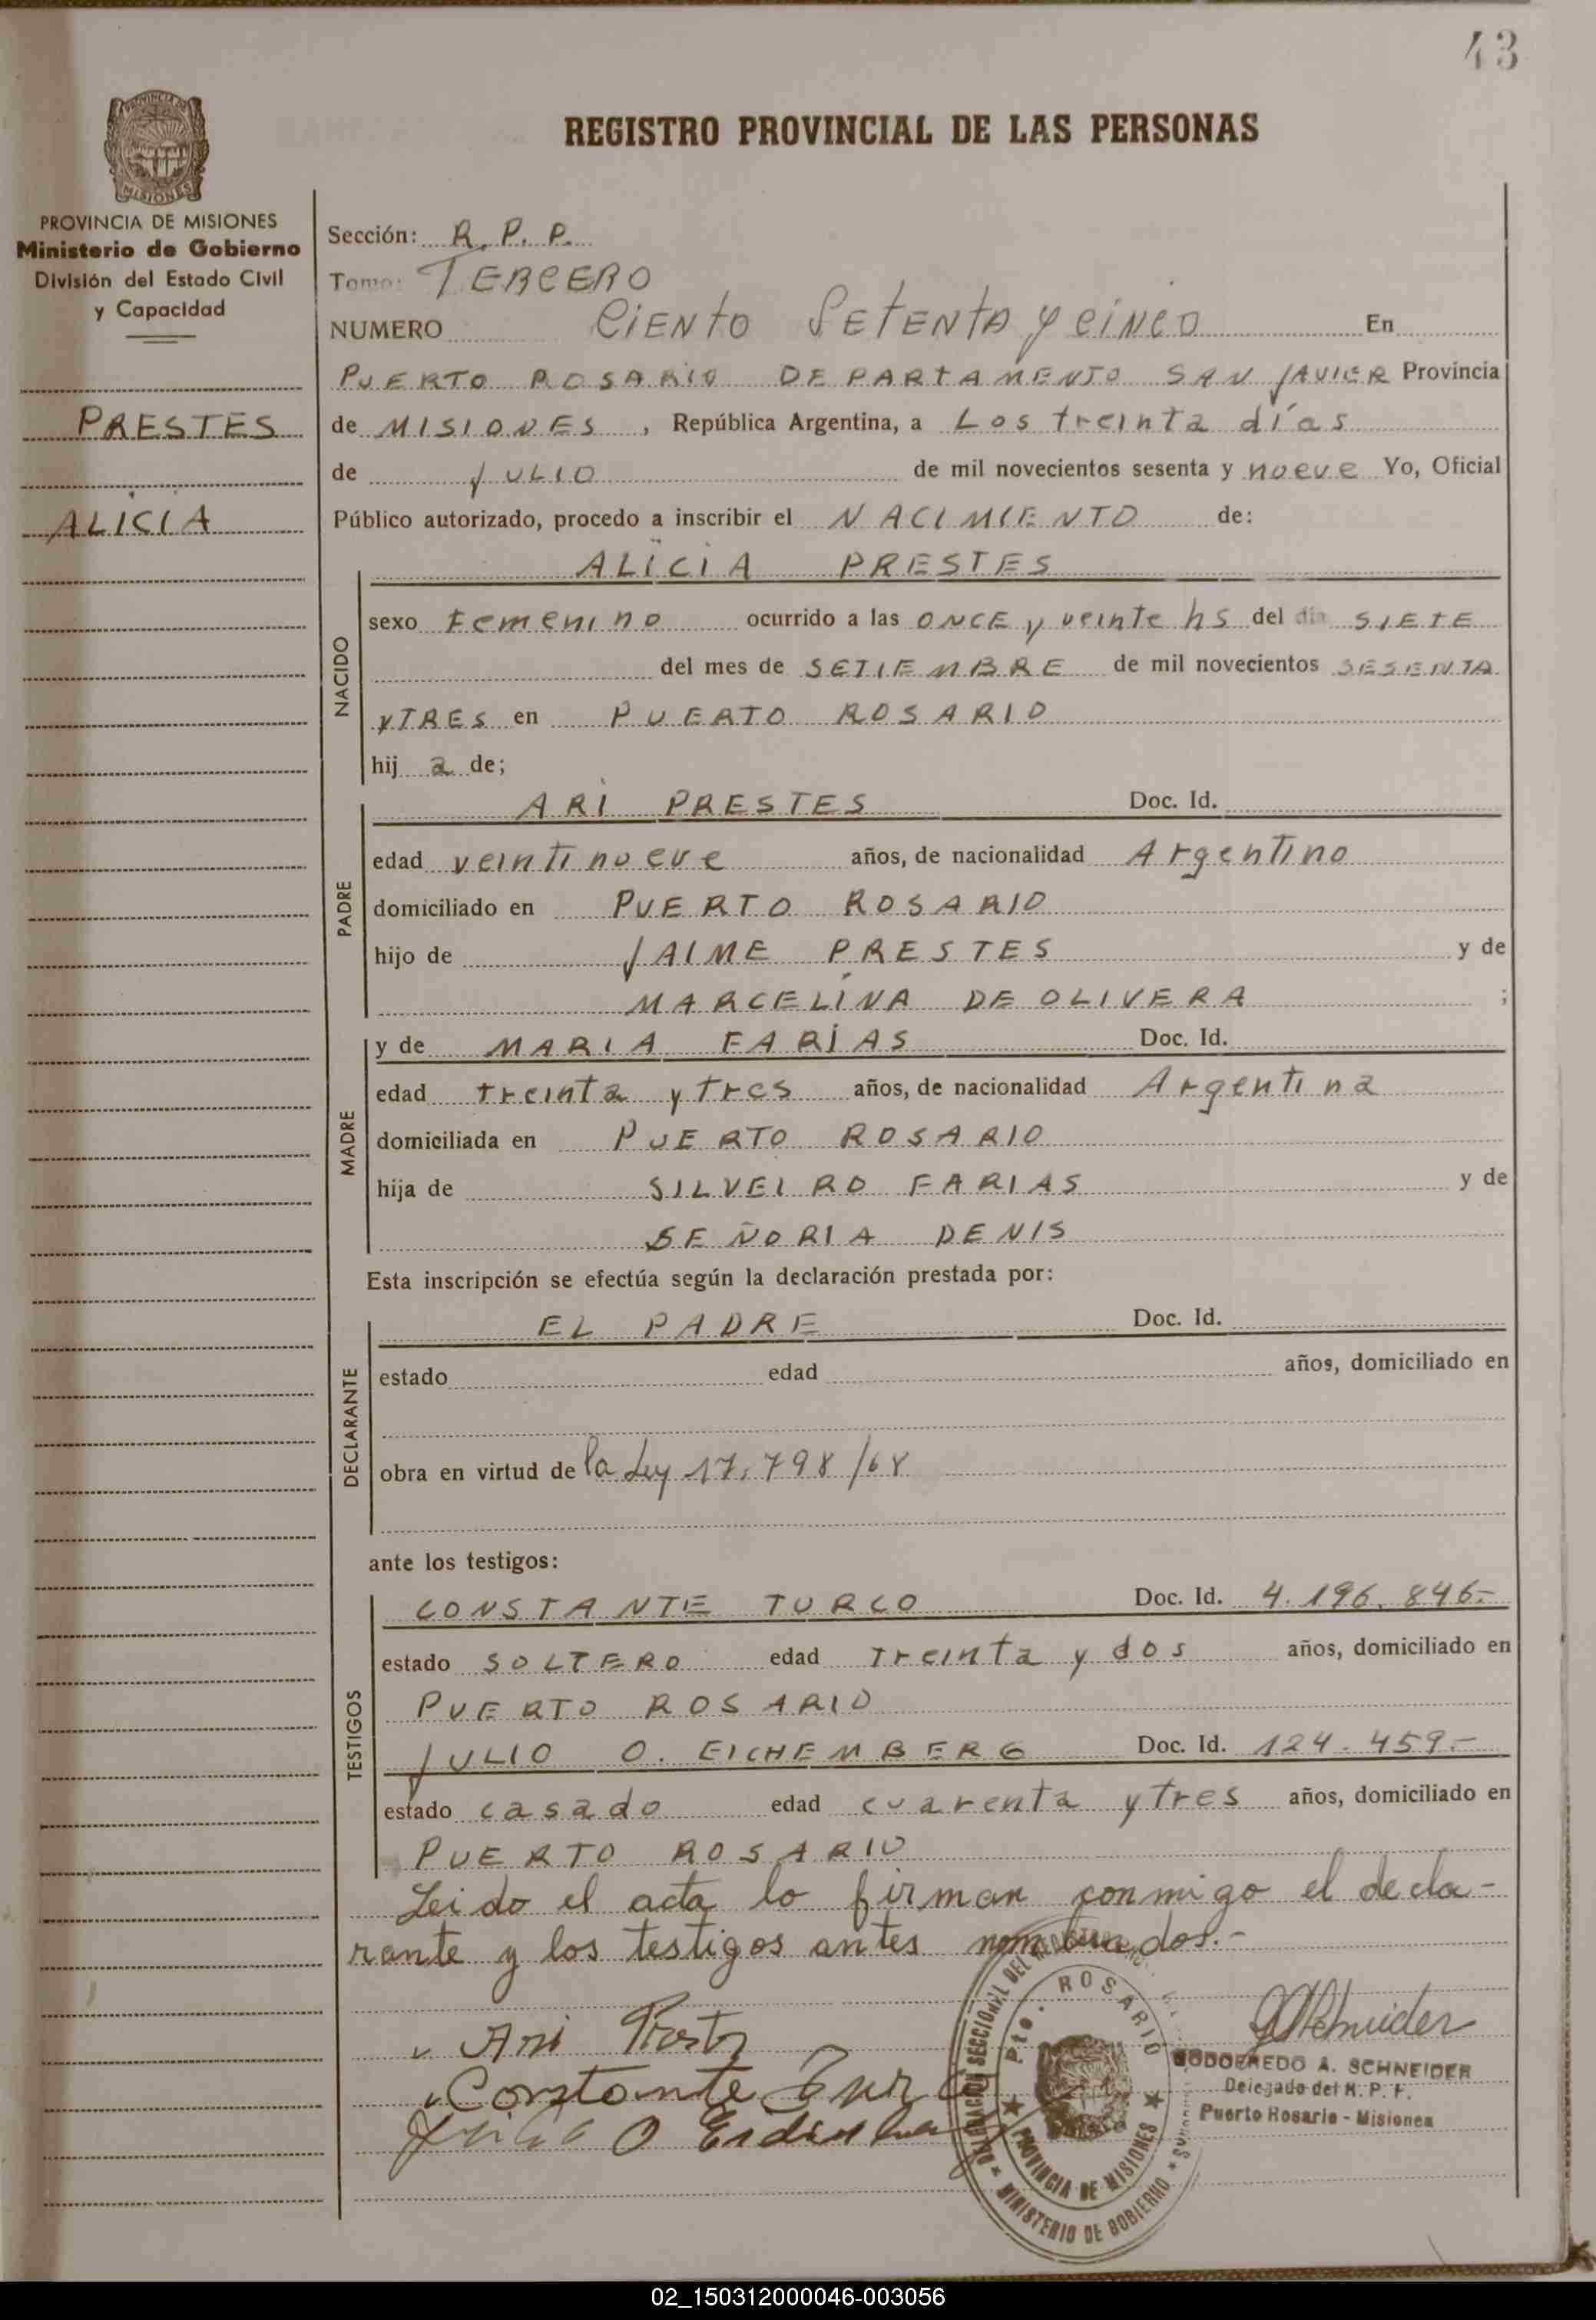 43
REGISTRO PROVINCIAL DE LAS PERSONAS
PROVINCIA DE MISIONES
Ministerio de Gobierno
División del Estado Civil
y Capacidad
PRESTES
ALICIA
Sección: R. P. P.
Tomo: TERCERO
NUMERO CIENTO SETENTA Y CINCO En
PUERTO ROSARIO DEPARTAMENTO SAN JAVIER Provincia
de MISIONES, República Argentina, a Los treinta días
de JULIO de mil novecientos sesenta y nueve Yo, Oficial
Público autorizado, procedo a inscribir el NACIMIENTO de:
NACIDO
ALICIA PRESTES
sexo Femenino ocurrido a las ONCE y veinte hs del día SIETE
del mes de SETIEMBRE de mil novecientos SESENTA
Y TRES en PUERTO ROSARIO
hij a de;
PADRE
ARI PRESTES Doc. Id.
edad veintinueve años, de nacionalidad Argentino
domiciliado en PUERTO ROSARIO
hijo de JAIME PRESTES y de
MARCELINA DE OLIVERA ;
MADRE
y de MARIA FARIAS Doc. Id.
edad treinta y tres años, de nacionalidad Argentina
domiciliada en PUERTO ROSARIO
hija de SILVEIRO FARIAS y de
SEÑORIA DENIS
Esta inscripción se efectúa según la declaración prestada por:
DECLARANTE
EL PADRE Doc. Id.
estado edad años, domiciliado en
obra en virtud de la Ley 17.798/68
ante los testigos:
TESTIGOS
CONSTANTE TURCO Doc. Id. 4.196.846.-
estado SOLTERO edad treinta y dos años, domiciliado en
PUERTO ROSARIO
JULIO O. EICHEMBERG Doc. Id. 124.459.-
estado casado edad cuarenta y tres años, domiciliado en
PUERTO ROSARIO
Leido el acta lo firman conmigo el decla-
rante y los testigos antes nombrados.-
Ari
Constante Turco
Pto. ROSARIO
PROVINCIA DE MISIONES
MINISTERIO DE GOBIERNO
Schneider
GODOFREDO A. SCHNEIDER
Delegado del R. P. P.
Puerto Rosario - Misiones
02_150312000046-003056